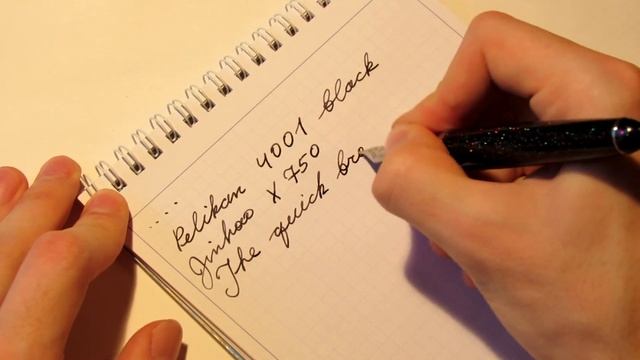 Pelikan 4001 black
Jinhao X 750
The quick bro